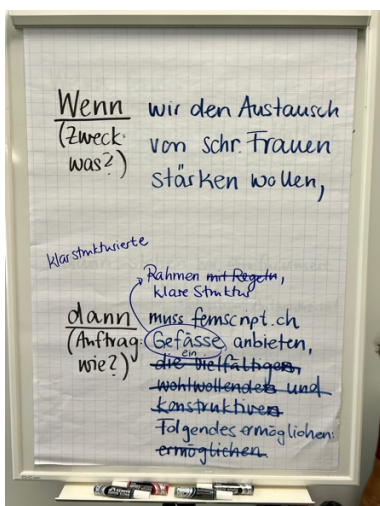 Wenn wir den Austausch
(Zweck von schr. Frauen
was?) stärken wollen,
klar strukturierte
Rahmen mit Regeln,
klare Struktur
dann muss femscript.ch
(Auftrag: Gefässe anbieten,
wie?) ein
die vielfältigen,
wohlwollenden und
konstruktiven
Folgendes ermöglichen:
ermöglichen